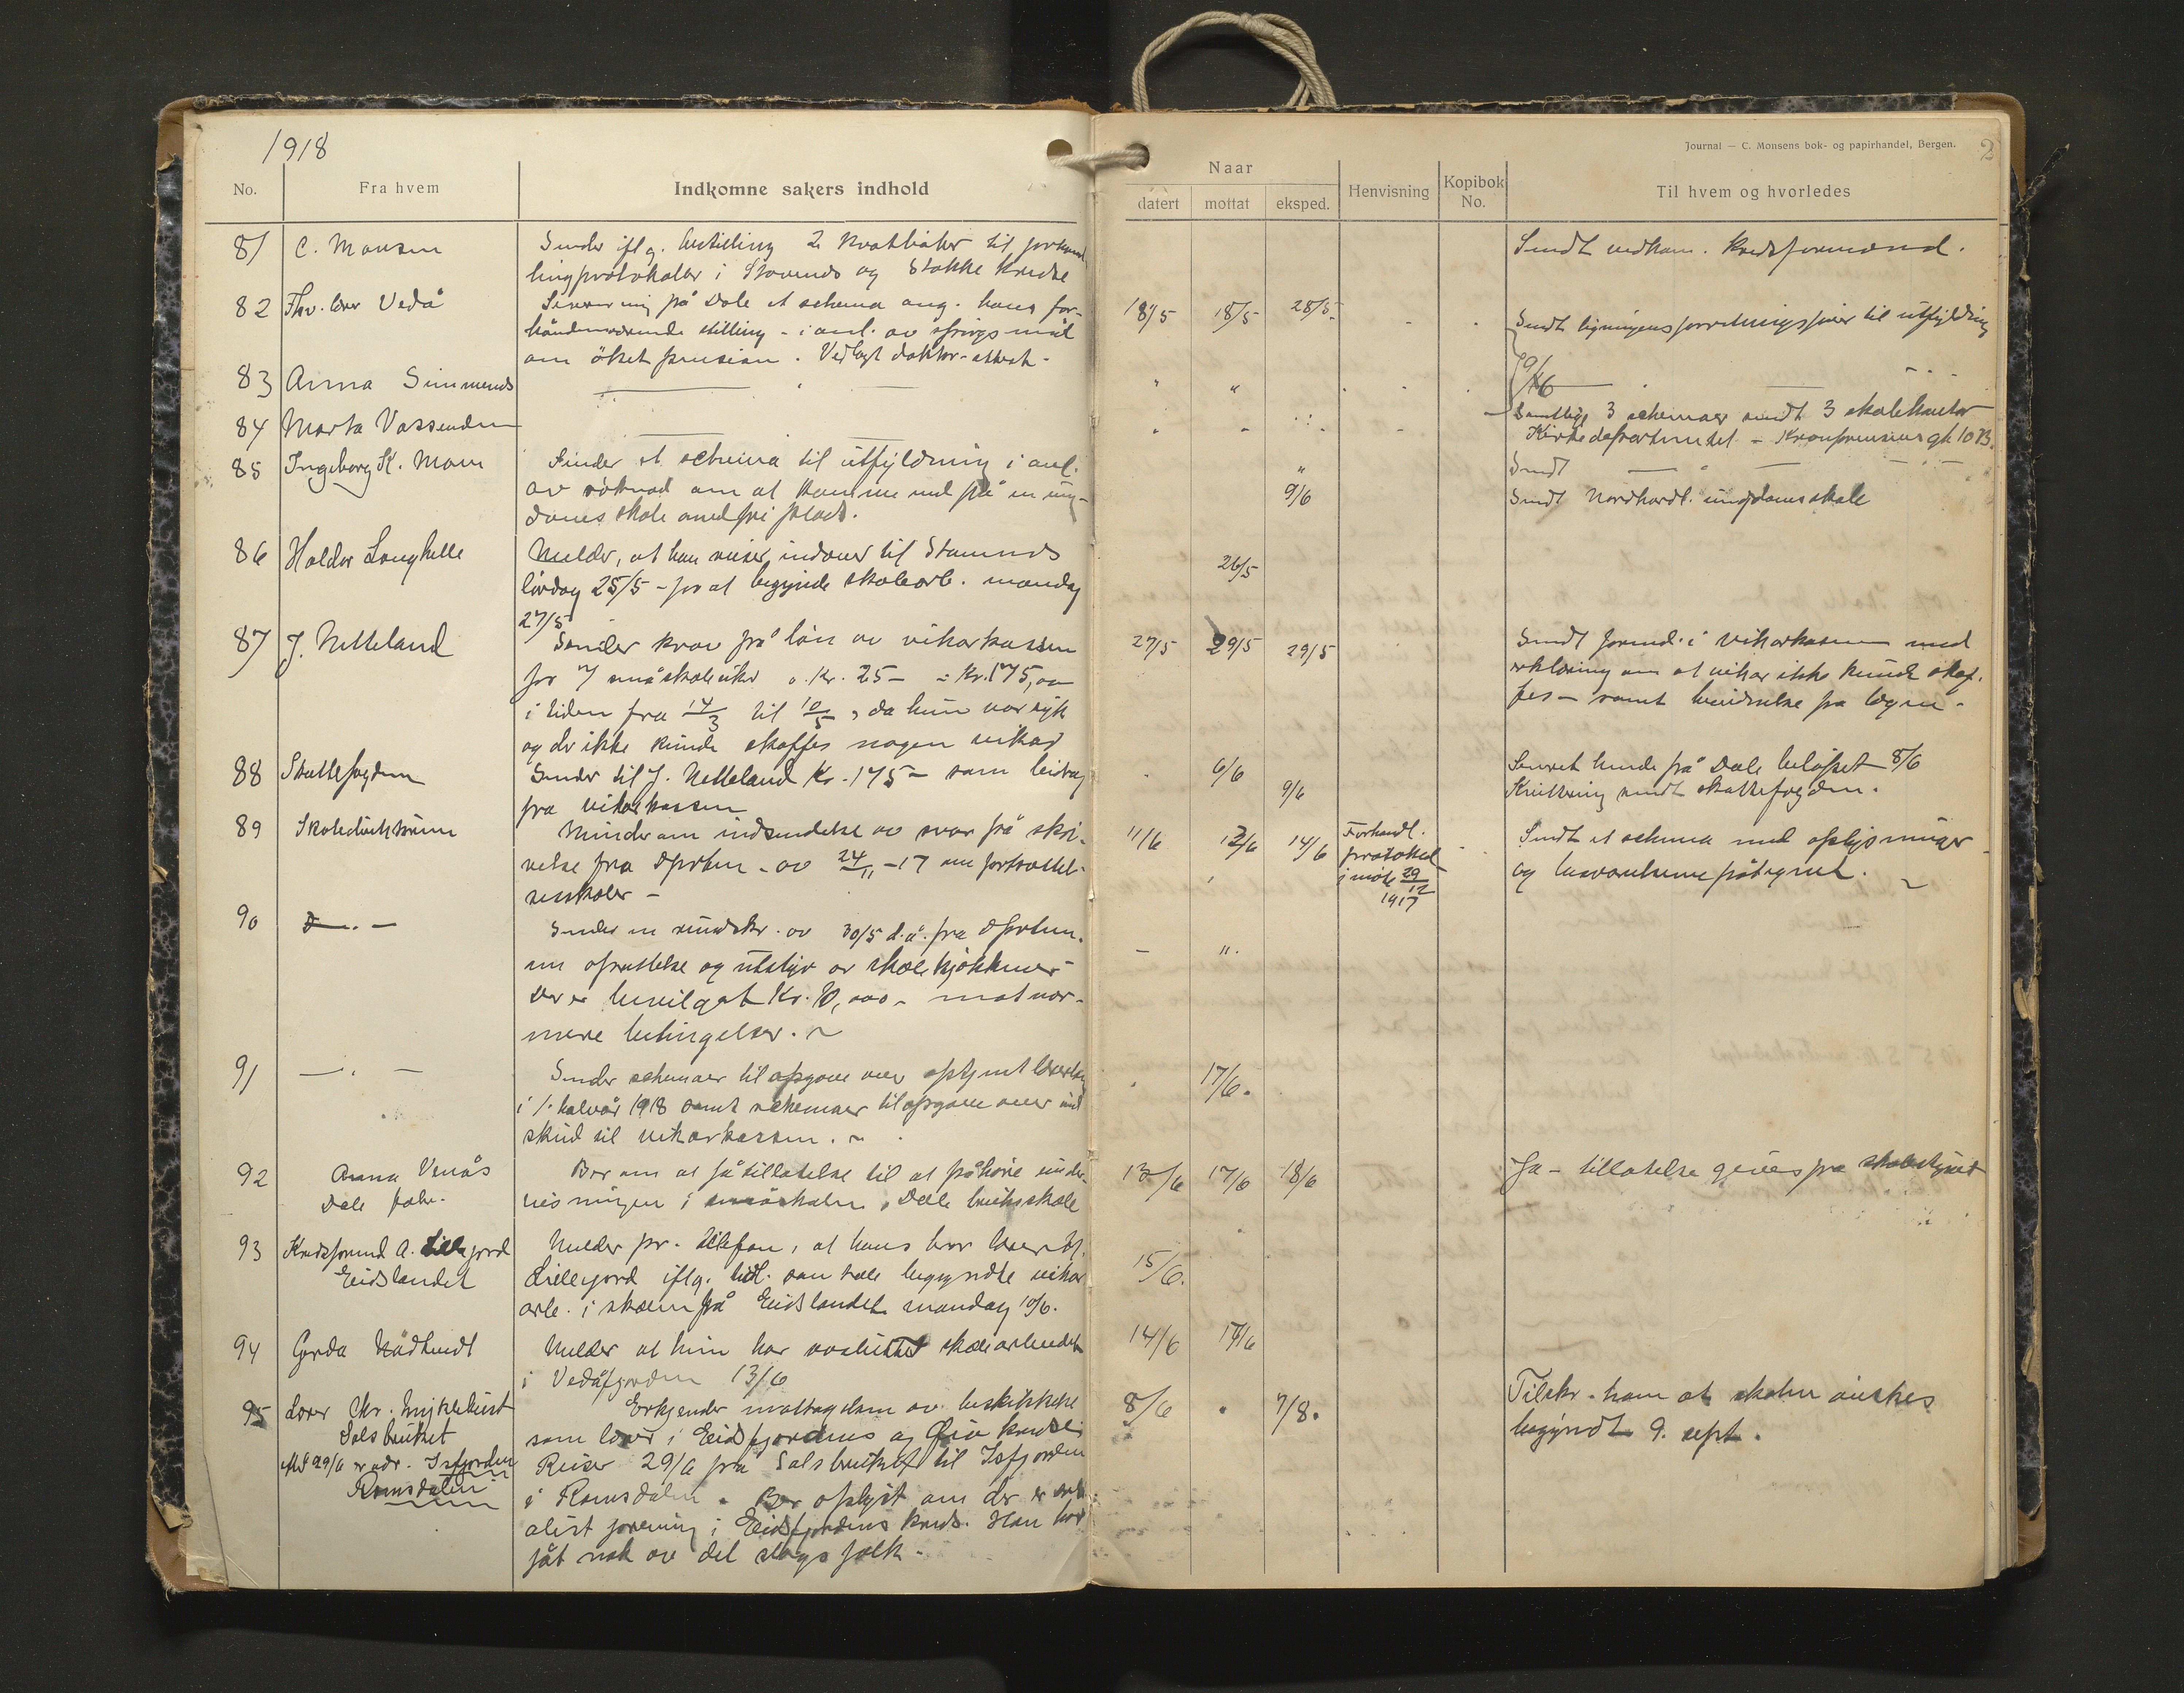 1918
Journal — C. Monsens bok- og papirhandel, Bergen.
2
No.
Fra hvem
Indkomne sakers indhold
Naar
datert
mottat
eksped.
Henvisning
Kopibok
No.
Til hvem og hvorledes
81 C. Monsen
Sender iflg. bestilling 2 kvothefter til forhand
lingsprotokoller i Stamnes og Stokke kredse
Sendt vedkom. kredsformænd.
82 Fhv. lærer Vedå
på Dale et schema ang. hans for-
håndenværende stilling - i anl. av spørgsmål
om øket pension. Vedlagt doktor-attest.
18/5 18/5 28/5
Sendt ligningens til utfyldning
83 Anna Simmenes
9/6
84 Marta Vassenden
Samtlige 3 schemaer sendt 3 skolekontor
Kirkedepartementet - Kronprinsensgt 10 B.
85 Ingeborg K. Mom
Sender et schema til utfyldning i anl.
av søknad om at komme ind på en ung-
domsskole med fri plads.
9/6
Sendt
Sendt Nordhordl. ungdomsskole
86 Haldor Langhelle
Melder, at han reiser indover til Stamnes
lørdag 25/5 - for at begynde skolearb. mandag
27/5
26/5
87 J. Netteland
Sender krav på løn av vikarkassen
for 7 småskoleuker a. Kr. 25 - = Kr. 175,00
i tiden fra 14/3 til 10/5, da hun var syk
og der ikke kunde skaffes nogen vikar
27/5 29/5 29/5
Sendt formd. i vikarkassen med
erklæring om at vikar ikke kunde skaf-
fes - samt henviselse fra lægen.
88 Skattefogden
Sender til J. Netteland Kr. 175 - som bidrag
fra vikarkassen
6/6 9/6
Sendt hende på Dale beløpet 8/6
Kvittering sendt skattefogden.
89 Skoledirektøren
Minder om indsendelse av svar på skri-
velse fra dprtm. av 24/11 -17 om fortsættel-
sesskoler -
11/6 13/6 14/6
Forhandl.
protokol
i møte 29/12
1917
Sendt et schema med oplysninger
og besvarelserne påtegnet.
90 D — . —
Sender en rundskr. av 30/5 d.å. fra dprtm.
om oprettelse og utstyr av skolekjøkkener
Der er bevilget Kr. 10,000 - mot nær-
mere betingelser.
— ".
91 — . —
Sender schemaer til opgave over optjent
i 1. halvår 1918 samt schemaer til opgave over ind
skud til vikarkassen.
17/6.
92 Anna Venås
Dale fabr.
Ber om at få tillatelse til at påhøre under-
visningen i småskolen, Dale bruksskole
13/6 17/6 18/6
Ja - tillatelse gives fra skolestyret
93 Kredsformd A. Lillejord
Eidslandet
Melder pr. telefon, at hans bror lærer M.
Lillejord iflg. tidl. samtale begyndte vikar
arb. i skolen på Eidslandet mandag 10/6.
15/6.
94 Gerda Nådtvedt
Melder at hun har avsluttet skolearbeidet
i Vedåfjorden 13/6
14/6 17/6
95 Lærer Chr. Myklebust
Salsbruket
29/6 er adr. Isfjorden
Romsdalen
Erkjender mottagelsen av beskikkelse
som lærer i Eidsfjordens og Øio kredse
Reiser 29/6 fra Salsbruket til Isfjorden
i Romsdalen. Ber oplyst om der er
alist forening i Eidsfjordens kreds. Han har
fåt nok av det slags folk.
8/6 7/8.
Tilskr. ham at skolen ønskes
begyndt 9. sept.